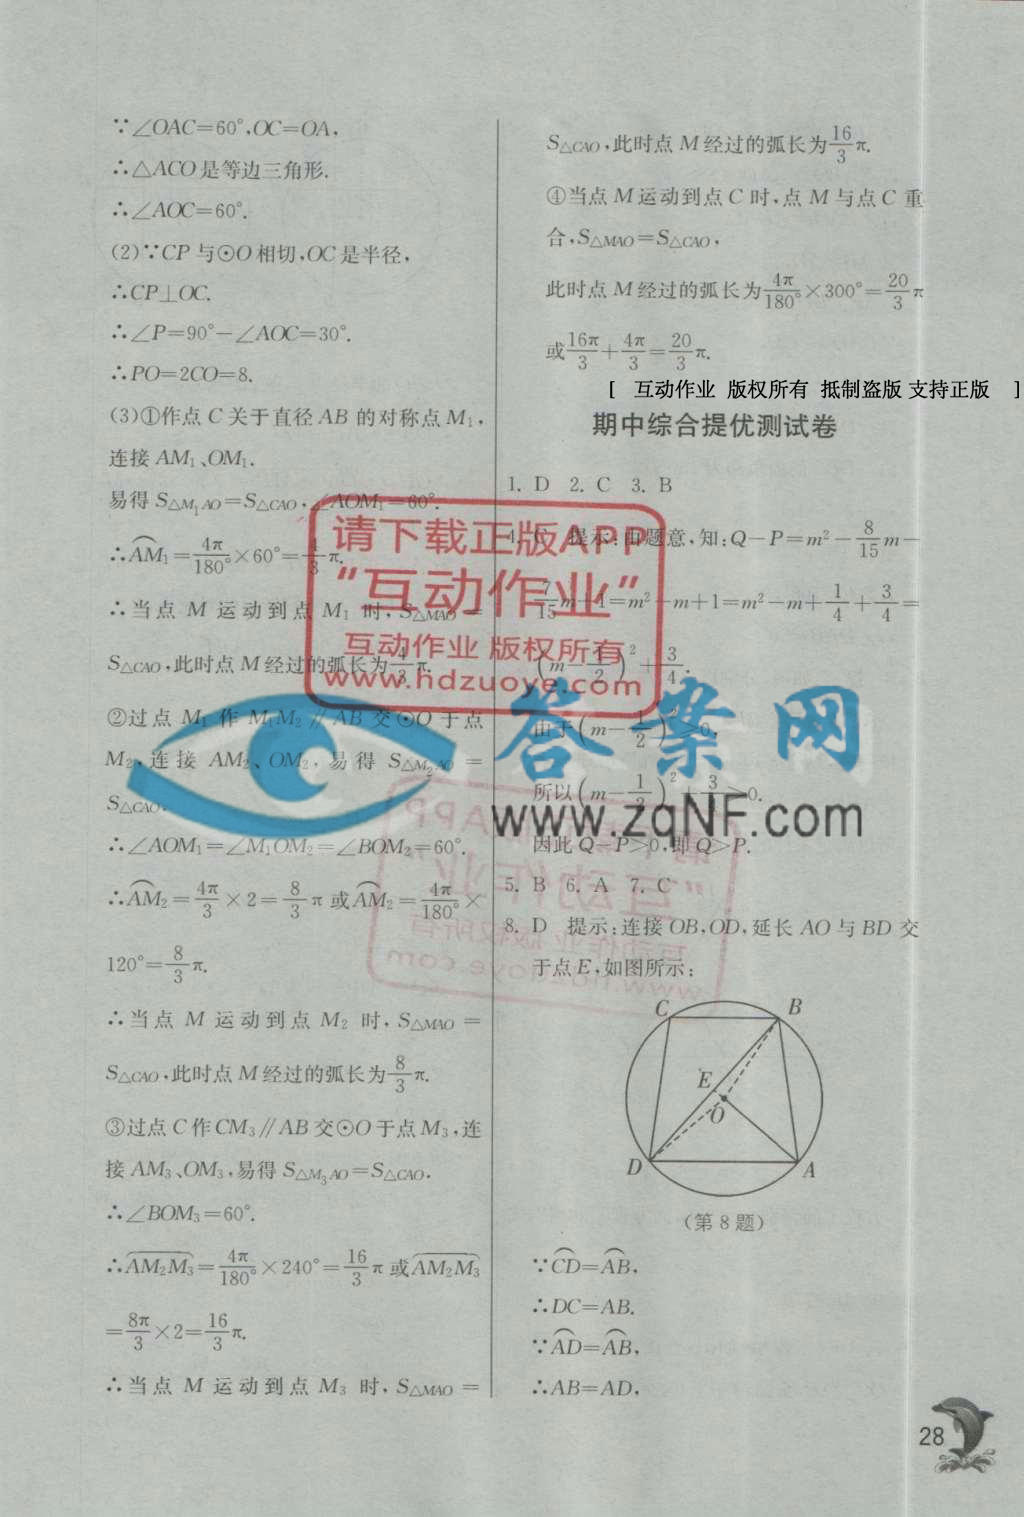 ∵∠OAC=60°,OC=OA,
∴△ACO是等边三角形.
∴∠AOC=60°.
(2)∵CP与⊙O相切,OC是半径,
∴CP⊥OC.
∴∠P=90°−∠AOC=30°.
∴PO=2CO=8.
(3)①作点C关于直径AB的对称点M₁,
连接AM₁、OM₁.
易得S△M₁AO=S△CAO,∠AOM₁=60°.
∴AM₁=4π/180°×60°=4/3π.
∴当点M运动到点M₁时,S△MAO=
S△CAO,此时点M经过的弧长为4/3π.
②过点M₁作M₁M₂∥AB交⊙O于点
M₂,连接AM₂、OM₂,易得S△M₂AO=
S△CAO.
∴∠AOM₁=∠M₁OM₂=∠BOM₂=60°.
∴AM₂=4π/3×2=8/3π或AM₂=4π/180°×
120°=8/3π.
∴当点M运动到点M₂时,S△MAO=
S△CAO,此时点M经过的弧长为8/3π.
③过点C作CM₃∥AB交⊙O于点M₃,连
接AM₃、OM₃,易得S△M₃AO=S△CAO.
∴∠BOM₃=60°.
∴AM₂M₃=4π/180°×240°=16/3π或AM₂M₃
=8π/3×2=16/3π.
∴当点M运动到点M₃时,S△MAO=
S△CAO,此时点M经过的弧长为16/3π.
④当点M运动到点C时,点M与点C重
合,S△MAO=S△CAO,
此时点M经过的弧长为4π/180°×300°=20/3π
或16π/3+4π/3=20/3π.
[ 互动作业 版权所有 抵制盗版 支持正版 ]
期中综合提优测试卷
1. D 2. C 3. B
4. C 提示:由题意,知:Q−P=m²−8/15m−
7/15m+1=m²−m+1=m²−m+1/4+3/4=
(m−1/2)²+3/4.
由于(m−1/2)²≥0,
所以(m−1/2)²+3/4>0.
因此Q−P>0,即Q>P.
5. B 6. A 7. C
8. D 提示:连接OB,OD,延长AO与BD交
于点E,如图所示:
C B
E
O
D A
(第8题)
∵CD=AB,
∴DC=AB.
∵AD=AB,
∴AB=AD,
28
请下载正版APP
“互动作业”
互动作业 版权所有
www.hdzuoye.com
答案网
www.zqNF.com